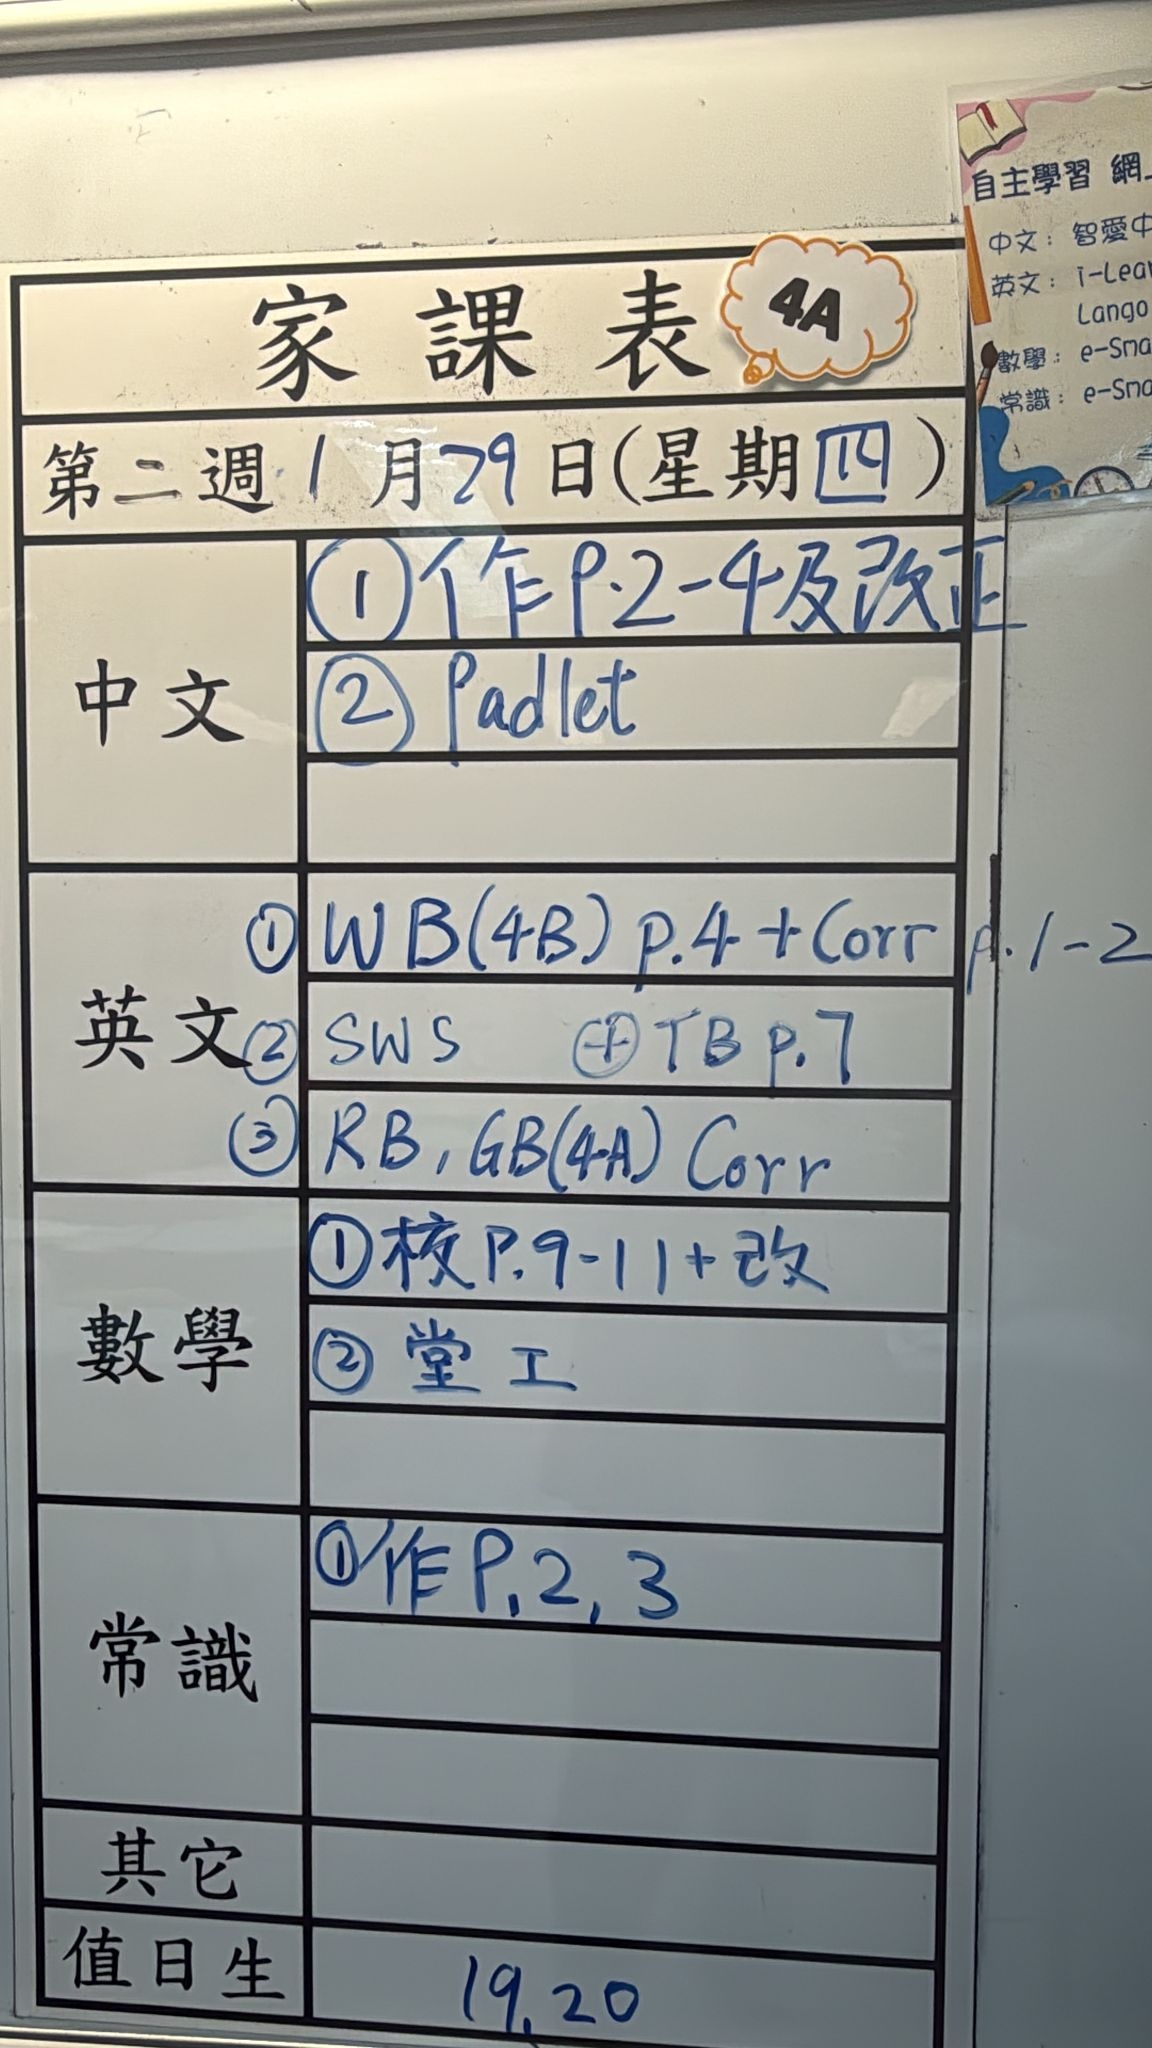 家課表 4A
第二週 1月29日(星期四)
中文
① 作P.2-4及改正
② Padlet
英文
① WB(4B) p.4 + Corr p.1-2
② SWS ⊕ TB p.7
③ RB, GB(4A) Corr
數學
① 校P.9-11+改
② 堂工
常識
① 作P.2,3
其它
值日生
19,20
自主學習 網
中文：智愛中
英文：i-Lear
Lango
數學：e-Sma
常識：e-Sma